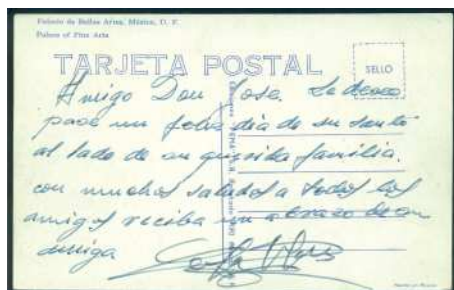 Palacio de Bellas Artes, México, D. F.
Palace of Fine Arts
TARJETA POSTAL
SELLO
Amigo Don Jose. Le deseo
pase un feliz dia de su santo
al lado de su querida familia.
con muchos saludos a todos los
amigos reciba un abrazo de su
amiga